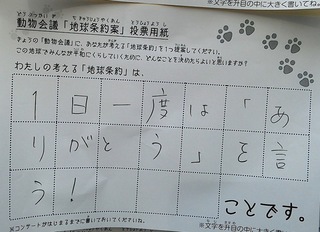 ※文字を升目の中に大きく書いてね。
どうぶつかいぎ ちきゅうじょうやくあん とうひょうようし
動物会議「地球条約案」投票用紙
きょうの「動物会議」に、あなたが考える「地球条約」を1つ提案してください。
この地球でみんなが平和にくらしていくために、どんなことを決めたらよいと思いますか?
わたしの考える「地球条約」は、
1日一度は「あ
りがとう」を言
う!
ことです。
※コンサートがはじまるまでに書いておいてくださいね。
※文字を升目の中に大きく書いて